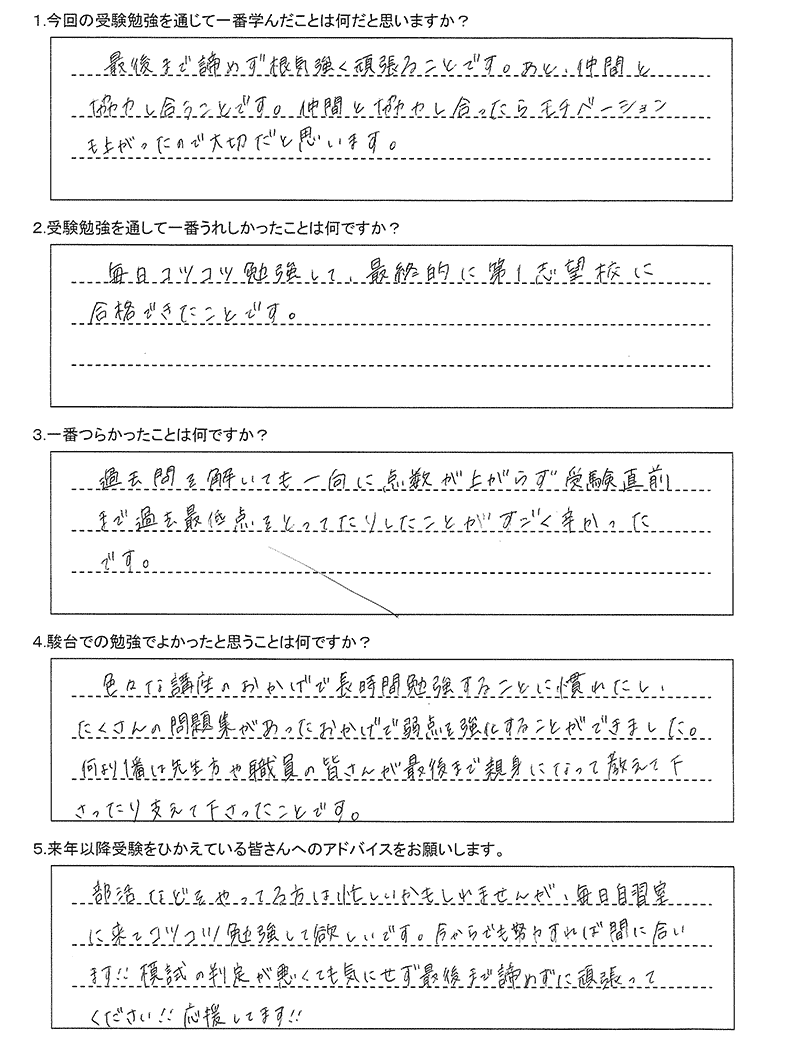 1.今回の受験勉強を通じて一番学んだことは何だと思いますか？
最後まで諦めず根気強く頑張ることです。あと、仲間と
協力し合うことです。仲間と協力し合ったらモチベーション
も上がったので大切だと思います。
2.受験勉強を通して一番うれしかったことは何ですか？
毎日コツコツ勉強して、最終的に第1志望校に
合格できたことです。
3.一番つらかったことは何ですか？
過去問を解いても一向に点数が上がらず受験直前
まで過去最低点をとってたりしたことがすごく辛かった
です。
4.駿台での勉強でよかったと思うことは何ですか？
色々な講座のおかげで長時間勉強することに慣れたし、
たくさんの問題集があったおかげで弱点を強化することができました。
何より1番は先生方や職員の皆さんが最後まで親身になって教えて下
さったり支えて下さったことです。
5.来年以降受験をひかえている皆さんへのアドバイスをお願いします。
部活などをやってる方は忙しいかもしれませんが、毎日自習室
に来てコツコツ勉強して欲しいです。今からでも努力すれば間に合い
ます!!模試の判定が悪くても気にせず最後まで諦めずに頑張って
ください!!応援してます!!